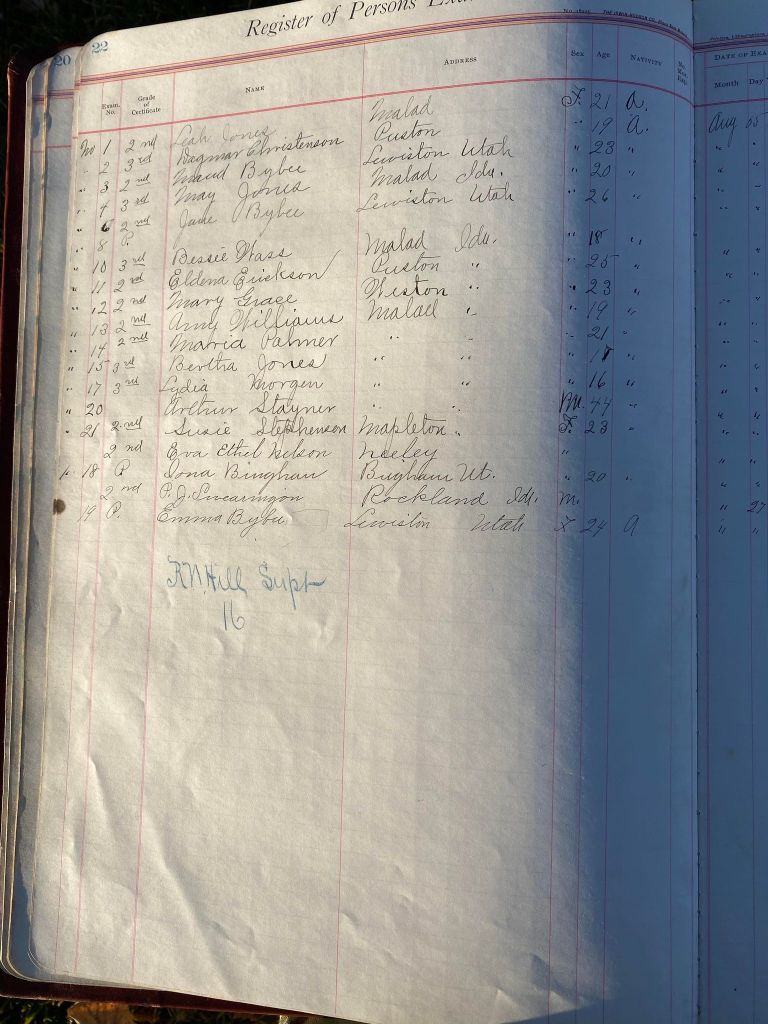 Register of Persons Exa
No. 18225 THE
20 22
Exam. No. Grade of Certificate NAME ADDRESS Sex Age NATIVITY DATE OF EXA
Month Day
No 1 2nd Leah Jones Malad F. 21 a.
" 2 3rd Dagmar Christenson Puston " 19 a. Aug
" 3 2nd Maud Bybee Lewiston Utah " 23 "
" 4 3rd May Jones Malad Ida. " 20 "
" 6 2nd Jane Bybee Lewiston Utah " 26 "
" 8 P.
" 10 3rd Bessie Wass Malad Ida. " 18 "
" 11 2nd Eldena Erickson Puston " " 25 "
" 12 2nd Mary Grace Weston " " 23 "
" 13 2nd Amy Williams Malad " " 19 "
" 14 2nd Maria Palmer " " " 21 "
" 15 3rd Bertha Jones " " " "
" 17 3rd Lydia Morgen " " " 16 "
" 20 Arthur Stayner " " M. 44 "
" 21 2nd Susie Stephenson Mapleton " F. 23 "
2nd Eva Ethel Nelson Neeley "
" 18 P Iona Bingham Brigham Ut. " 20 "
2nd P. J. Swearingon Rockland Ida. M. " 27
19 P. Emma Bybee Lewiston Utah F 24 a " "
R.N. Hill Supt
16